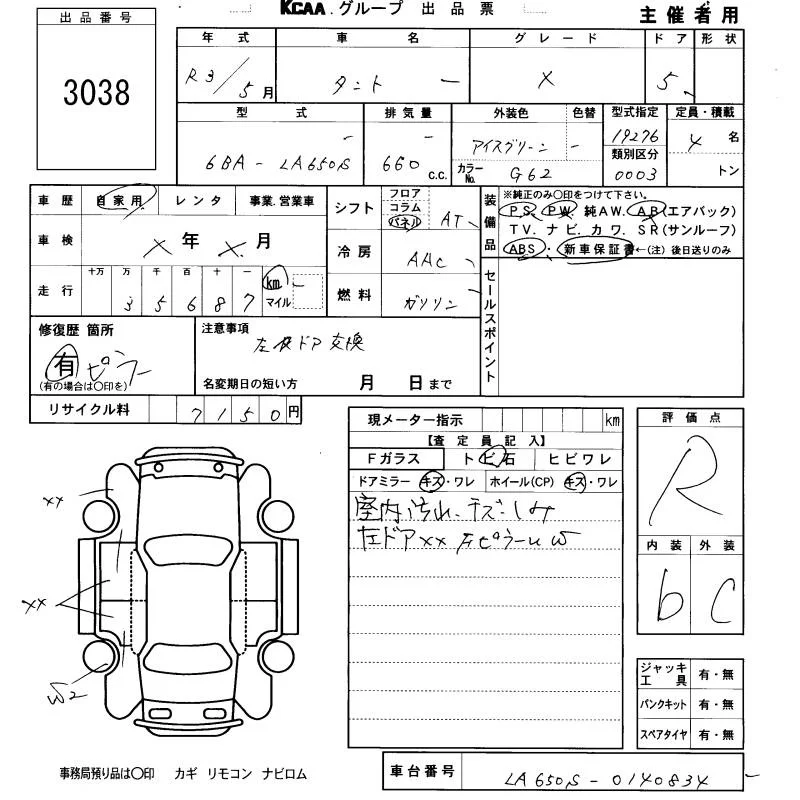 出品番号
3038
KCAA.グループ 出品票
主催者用
年式 車名 グレード ドア 形状
R3/5月 タント ー X 5
型式 排気量 外装色 色替 型式指定 定員・積載
6BA - LA650S 660 c.c. アイスグリーン - 19276 4名
カラーNo. G62 類別区分 0003 トン
車歴 自家用 レンタ 事業.営業車
車検 X年 X月
走行 十万 万 千 百 十 一
3 5 6 8 7 km マイル
シフト フロア コラム パネル AT
冷房 AAC
燃料 ガソリン
装備品
※純正のみ〇印をつけて下さい。
PS. PW. 純AW. AB(エアバック)
TV. ナビ. カワ. SR(サンルーフ)
ABS・新車保証書←(注)後日送りのみ
セールスポイント
修復歴 箇所
有 ピラー
(有の場合は〇印を)
注意事項
左 ドア 交換
名変期日の短い方 月 日まで
リサイクル料 7150円
現メーター指示 km
【査定員記入】
Fガラス トビ石 ヒビワレ
ドアミラー キズ・ワレ ホイール(CP) キズ・ワレ
室内汚れ.キズ.シミ
左ドアXX 左ピラーU W
評価点
R
内装 外装
b C
XX
XX
W2
ジャッキ工具 有・無
パンクキット 有・無
スペアタイヤ 有・無
事務局預り品は〇印 カギ リモコン ナビロム
車台番号 LA650S - 0140834